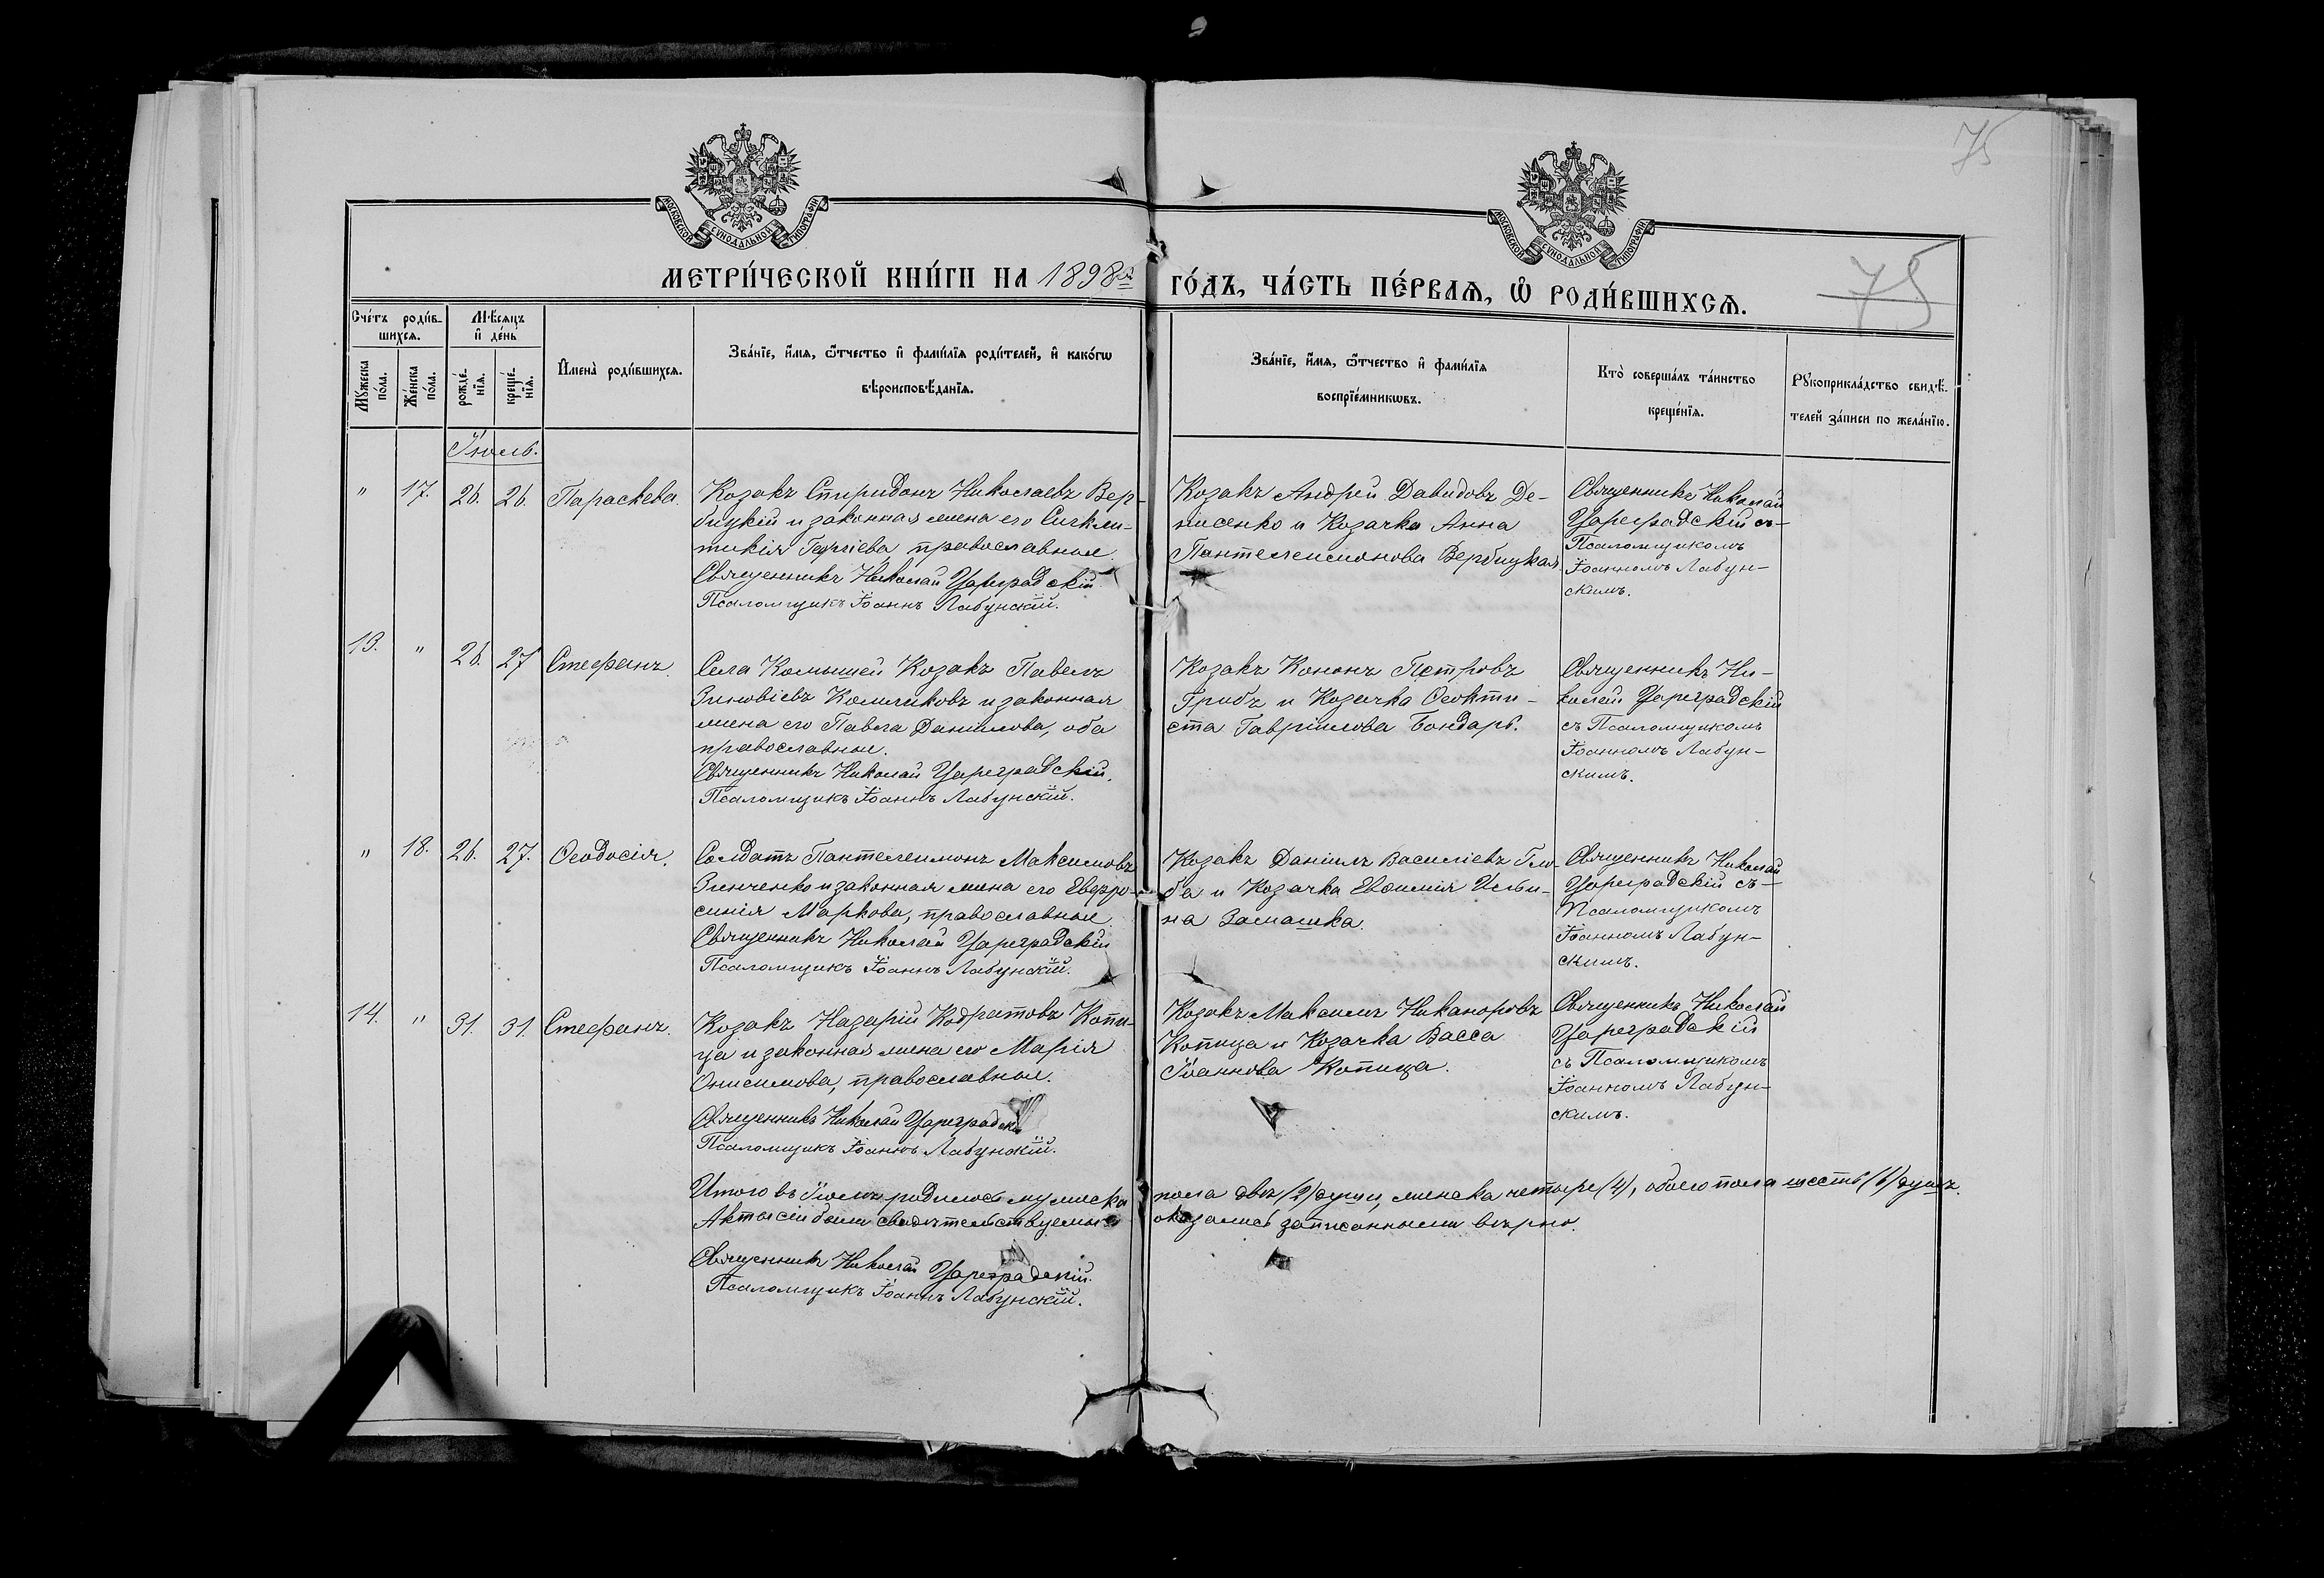 75
МОСКОВСКОЙ СУНОДАЛЬНОЙ ТИПОГРАФІИ
МОСКОВСКОЙ СУНОДАЛЬНОЙ ТИПОГРАФІИ
МЕТРИ́ЧЕСКОЙ КНИ́ГИ НА 1898й ГО́ДЪ, ЧА́СТЬ ПЕ́РВАѦ, Ѡ҆ РОДИ́ВШИХСѦ.
75
Сче́тъ роди́в-
шихсѧ.
Мꙋжеска по́ла.
Же́нска по́ла.
Мѣ́сяцъ и҆ де́нь
рожде́-нїѧ.
креще́-нїѧ.
И҆мена̀ роди́вшихсѧ.
Зва́нїе, и҆́мѧ, ѻ҆́тчество и҆ фами́лїѧ роди́телей, и҆ како́гѡ
вѣроисповѣ́данїѧ.
Зва́нїе, и҆́мѧ, ѻ҆́тчество и҆ фами́лїѧ
воспрїе́мникѡвъ.
Кто̀ соверша́лъ та́инство
креще́нїѧ.
Рꙋкоприкла́дство свидѣ́-
телей за́писи по жела́нїю.
Іюль.
" 17. 26. 26. Параскева.
Козакъ Спиридонъ Николаевъ Вер-
бицкій и законная жена его Сигкли-
тикія Георгіева, православные
Священникъ Николай Цареградскій
Псаломщикъ Іоаннъ Лабунскій.
Козакъ Андрей Давидовъ Де-
нисенко и Козачка Анна
Пантелеимонова Вербицкая.
Священникъ Николай
Цареградскій съ
Псаломщикомъ
Іоанномъ Лабун-
скимъ.
13. " 26. 27 Стефанъ.
Села Комышей Козакъ Павелъ
Зиновіевъ Комличковъ и законная
жена его Павла Даниілова, оба
православные.
Священникъ Николай Цареградскій.
Псаломщикъ Іоаннъ Лабунскій.
Козакъ Кононъ Петровъ
Грибъ и Козачка Ѳеокти-
ста Гавріилова Бондарь.
Священникъ Ни-
колай Цареградскій
съ Псаломщикомъ
Іоанномъ Лабун-
скимъ.
" 18. 26. 27. Ѳеодосія.
Солдатъ Пантелеимонъ Максимовъ
Зинченко и законная жена его Евфро-
синія Маркова, православные
Священникъ Николай Цареградскій
Псаломщикъ Іоаннъ Лабунскій.
Козакъ Даніилъ Василіевъ Глю-
ба и Козачка Евѳимія Ильи-
на Замашка.
Священникъ Николай
Цареградскій съ
Псаломщикомъ
Іоанномъ Лабун-
скимъ.
14. " 31. 31. Стефанъ.
Козакъ Назарій Кодратовъ Копи-
ца и законная жена его Марія
Онисимова, православные.
Священникъ Николай Цареградскій
Псаломщикъ Іоаннъ Лабунскій.
Козакъ Максимъ Никаноровъ
Копица и Козачка Васса
Іоаннова Копица.
Священникъ Николай
Цареградскій
съ Псаломщикомъ
Іоанномъ Лабун-
скимъ.
Итого въ Іюлѣ родилось мужеска пола двѣ (2) души, женска четыре (4), обоего пола шесть (6) душъ.
Акты сіи были свидѣтельствуемы и оказались записанными вѣрно.
Священникъ Николай Цареградскій.
Псаломщикъ Іоаннъ Лабунскій.